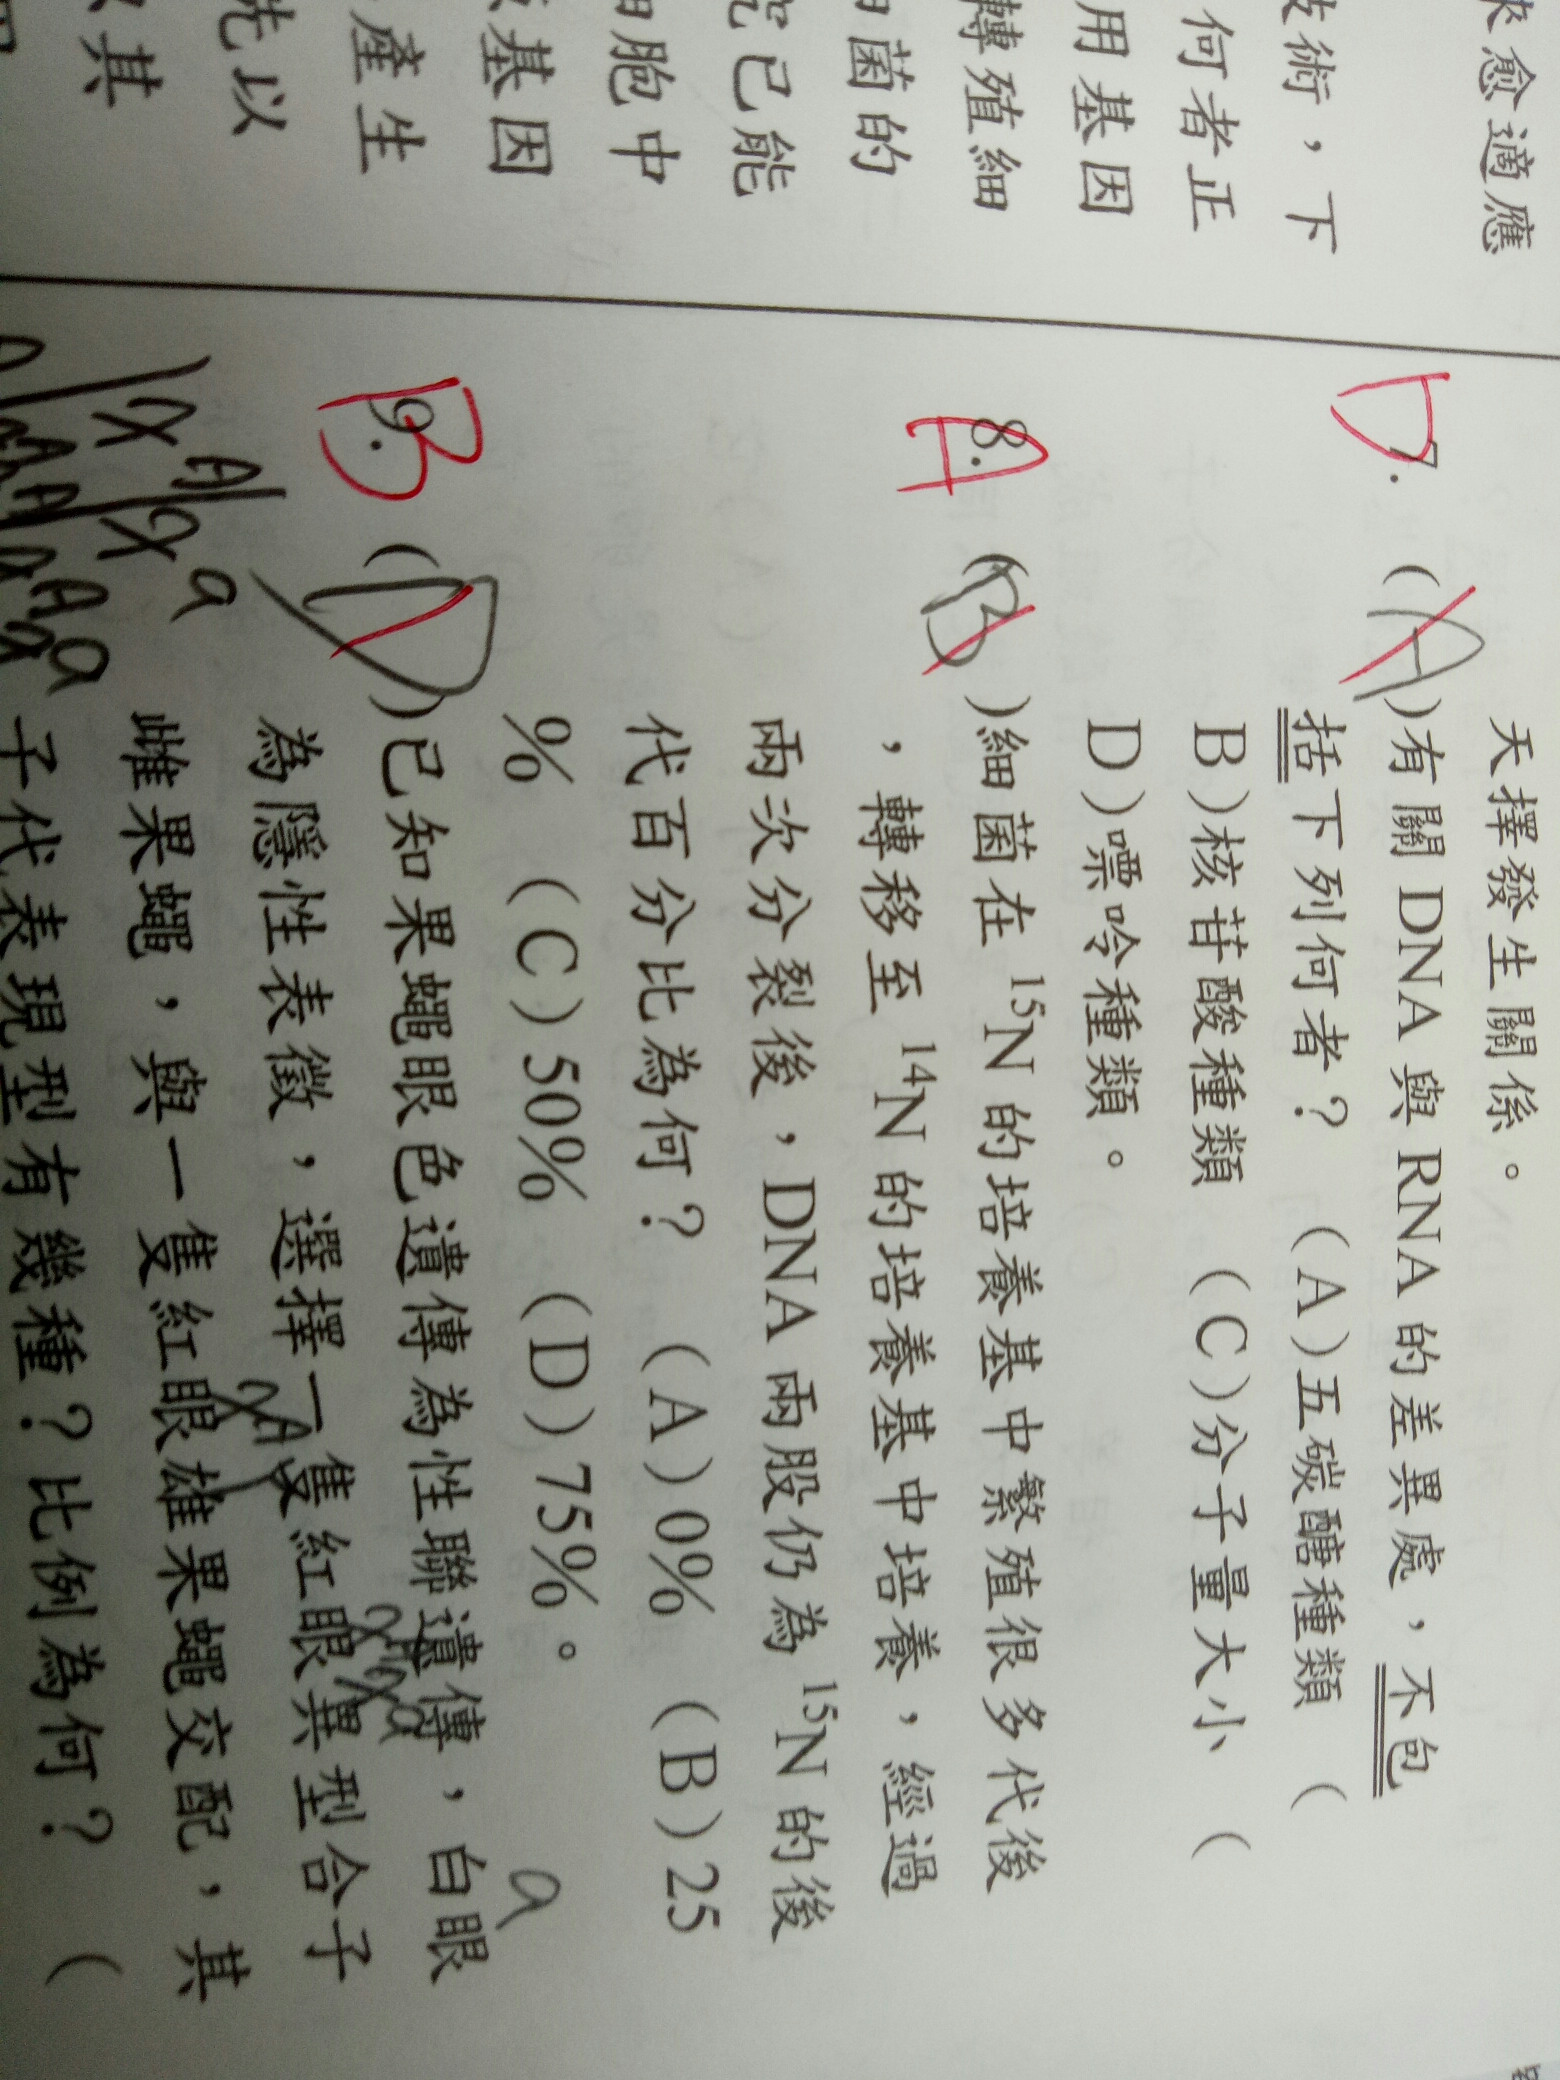 求愈適應
技術，下
何者正
用基因
轉殖細
菌的
已能
胞中
基因
產生
先以
其
天擇發生關係。
D
7. (A)有關 DNA 與 RNA 的差異處，不包
括下列何者？ (A)五碳醣種類 (
B)核苷酸種類 (C)分子量大小 (
D)嘌呤種類。
A
8. (B)細菌在 15N 的培養基中繁殖很多代後
，轉移至 14N 的培養基中培養，經過
兩次分裂後，DNA 兩股仍為 15N 的後
代百分比為何？ (A)0% (B)25
% (C)50% (D)75%。
a
B
9. (D)已知果蠅眼色遺傳為性聯遺傳，白眼
為隱性表徵，選擇一隻紅眼異型合子
雌果蠅，與一隻紅眼雄果蠅交配，其
子代表現型有幾種？比例為何？ (